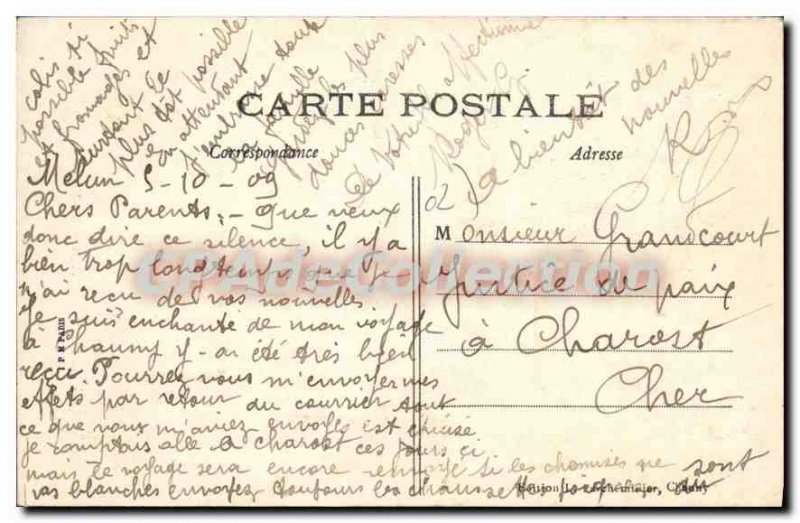 CARTE POSTALE
Correspondance
Adresse
Melun 5-10-09
Chers Parents. - que veux
donc dire ce silence, il y a
bien trop longtemps que je
n'ai reçu de vos nouvelles
Je suis enchanté de mon voyage
à Chauny y ai été très bien
reçu. Pourrez vous m'envoyer mes
effets par retour du courrier tout
ce que vous m'aviez envoyés est
je comptais allé à Charost ces jours ci
mais ce voyage sera encore si les chemises ne sont
pas blanches envoyez toujours les
colis si
possible fruits
et fromages et
surtout le
plus tôt possible
en attendant
j'embrasse toute
la famille
plus
douces caresses
affectionné
Roger
A bientôt des
nouvelles
Monsieur Grandcourt
Justice de paix
à Charost
Cher
P M PARIS
Edition Chauny
APaCeCollection